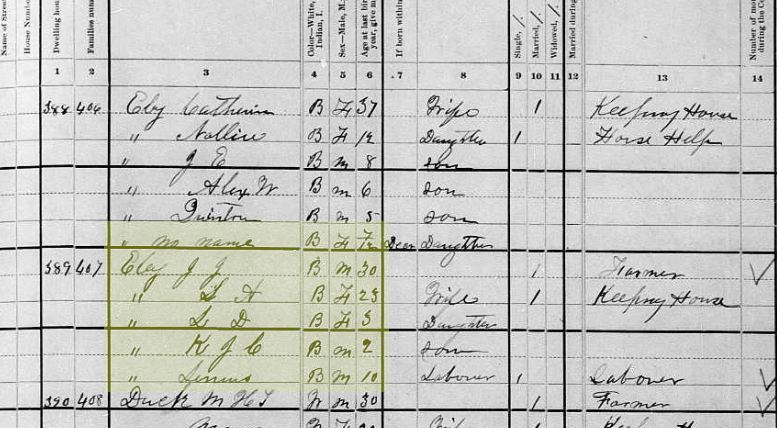 Name of Street
House Number
Dwelling hou
Families num
Color—White,
Indian, I.
Sex—Male, M.
Age at last bir
year, give m
If born within
Single, /.
Married, /.
Widowed, /.
Married during
Number of mon
during the Ce
1 2 3 4 5 6 7 8 9 10 11 12 13 14
388 406 Eby Catherin B F 37 Wife 1 Keeping House
" Nollie B F 12 Daughter 1 House Help
" J E B m 8 son
" Alex W B m 6 son
" Quinton B m 5 son
" no name B F Daughter
389 407 Eby J J B m 30 1 Farmer
" L A B F 23 Wife 1 Keeping House
" L D B F 3 Daughter
" K J C B m 2 son
" B m 10 Labover 1 Labover
390 408 Duck M H T W m 30 1 Farmer